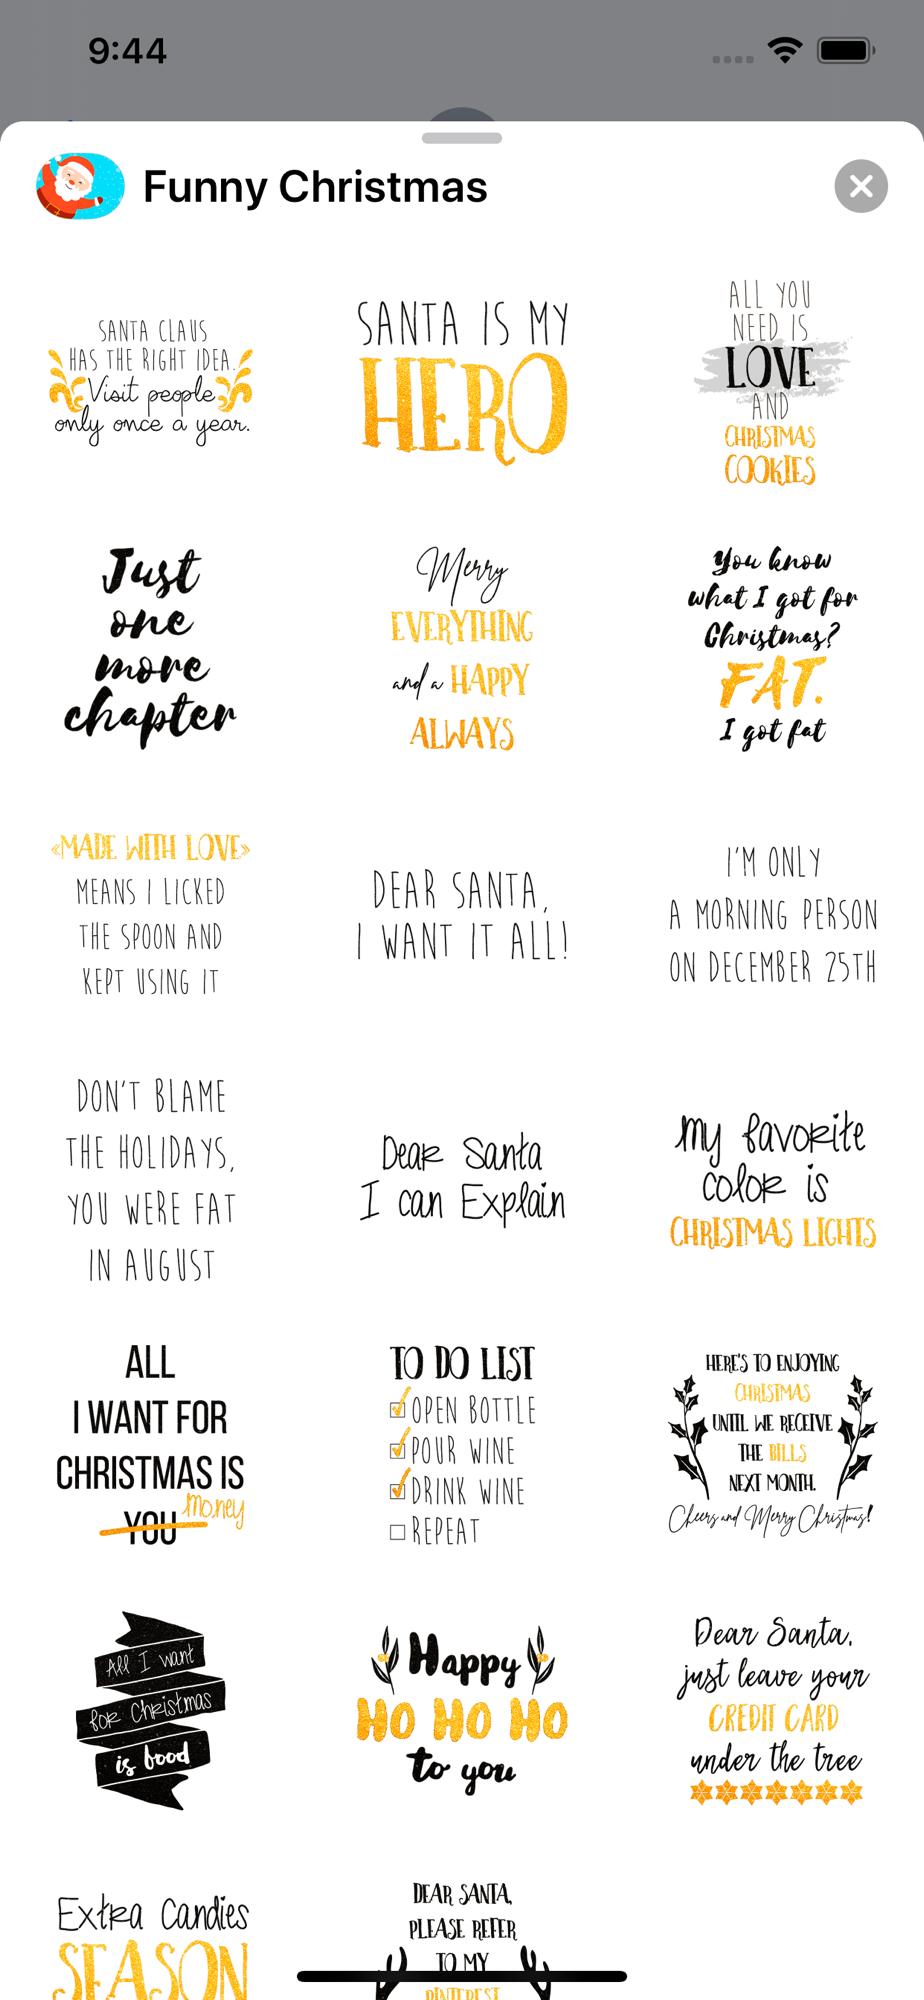 9:44
Funny Christmas
SANTA CLAUS
HAS THE RIGHT IDEA.
Visit people
only once a year.
SANTA IS MY
HERO
ALL YOU
NEED IS
LOVE
AND
CHRISTMAS
COOKIES
Just
one
more
chapter
Merry
EVERYTHING
and a HAPPY
ALWAYS
You know
what I got for
Christmas?
FAT.
I got fat
«MADE WITH LOVE»
MEANS I LICKED
THE SPOON AND
KEPT USING IT
DEAR SANTA,
I WANT IT ALL!
I'M ONLY
A MORNING PERSON
ON DECEMBER 25TH
DON'T BLAME
THE HOLIDAYS,
YOU WERE FAT
IN AUGUST
Dear Santa
I can Explain
My favorite
color is
CHRISTMAS LIGHTS
ALL
I WANT FOR
CHRISTMAS IS
YOU money
TO DO LIST
OPEN BOTTLE
POUR WINE
DRINK WINE
REPEAT
HERE'S TO ENJOYING
CHRISTMAS
UNTIL WE RECEIVE
THE BILLS
NEXT MONTH.
Cheers and Merry Christmas!
All I want
for Christmas
is food
Happy
HO HO HO
to you
Dear Santa,
just leave your
CREDIT CARD
under the tree
Extra Candies
SEASON
DEAR SANTA,
PLEASE REFER
TO MY
PINTEREST